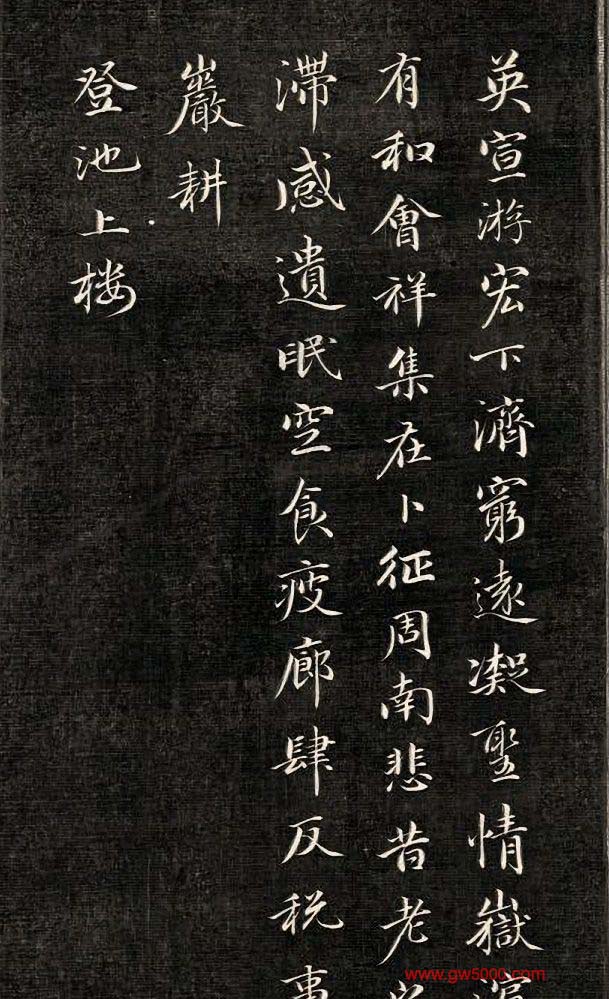 英宣游宏下濟窮遠凝聖情嶽
有和會祥集在卜征周南悲昔老
滯感遺眠空食疲廊肆反税事
巖耕
登池上楼
www.gw5000.com